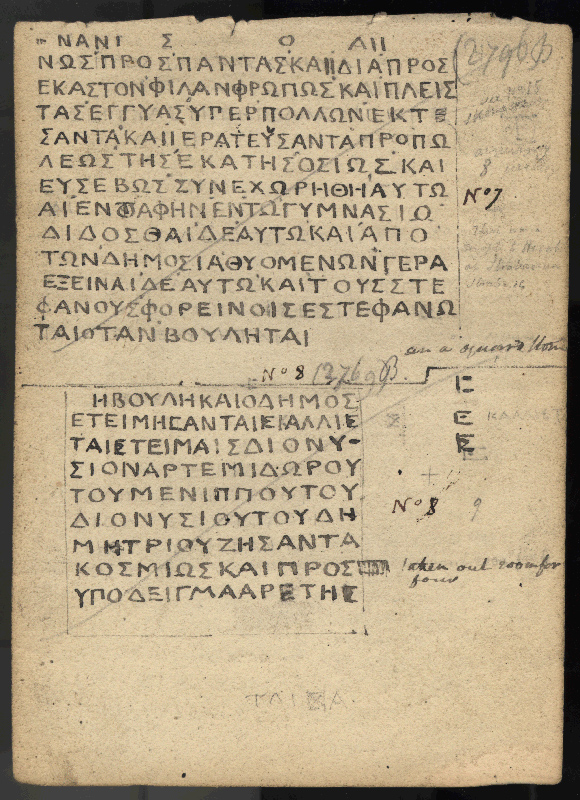 ΝΑΝΙ Σ Ο ΛΙΙ
ΝΩΣΠΡΟΣΠΑΝΤΑΣΚΑΙΙΔΙΑΠΡΟΣ
ΕΚΑΣΤΟΝΦΙΛΑΝΦΡΩΠΩΣΚΑΙΠΛΕΙΣ
ΤΑΣΕΓΓΥΑΣΥΠΕΡΠΟΛΛΩΝΕΚΤΕ
ΣΑΝΤΑΚΑΙΙΕΡΑΤΕΥΣΑΝΤΑΠΡΟΠΩ
ΛΕΩΣΤΗΣΕΚΑΤΗΣΟΣΙΩΣΚΑΙ
ΕΥΣΕΒΩΣΣΥΝΕΧΩΡΗΘΗΑΥΤΩ
ΑΙΕΝΦΑΦΗΝΕΝΤΩΓΥΜΝΑΣΙΩ
ΔΙΔΟΣΘΑΙΔΕΑΥΤΩΚΑΙΑΠΟ
ΤΩΝΔΗΜΟΣΙΑΘΥΟΜΕΝΩΝΓΕΡΑ
ΕΞΕΙΝΑΙΔΕΑΥΤΩΚΑΙΤΟΥΣΣΤΕ
ΦΑΝΟΥΣΦΟΡΕΙΝΟΙΣΕΣΤΕΦΑΝΩ
ΤΑΙΟΤΑΝΒΟΥΛΗΤΑΙ
(2796 B
No 7
on a square stone
No 8 (2769 B.
ΗΒΟΥΛΗΚΑΙΟΔΗΜΟΣ
ΕΤΕΙΜΗΣΑΝΤΑΙΕΙΑΛΛΙΕ
ΤΑΙΕΤΕΙΜΑΙΣΔΙΟΝΥ-
ΣΙΟΝΑΡΤΕΜΙΔΩΡΟΥ
ΤΟΥΜΕΝΙΠΠΟΥΤΟΥ
ΔΙΟΝΥΣΙΟΥΤΟΥΔΗ
ΜΗΤΡΙΟΥΖΗΣΑΝΤΑ
ΚΟΣΜΙΩΣΚΑΙΠΡΟΣ
ΥΠΟΔΕΙΓΜΑΑΡΕΤΗΣ
Ε
Ε
Σ
No 8 9
taken out room for
four